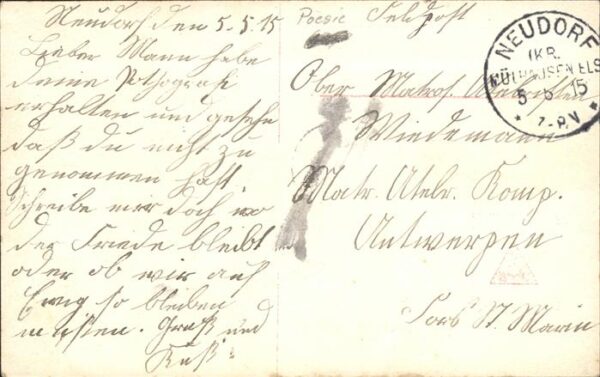 Neudorf den 5.5.15
Lieber Mann habe
deine Pothografi
erhalten und gesehe
daß du nicht zu
genommen hast
Schreibe mir doch wo
der Friede bleibt
oder ob wir auf
Ewig so bleiben
müssen. Gruß und
Kuß
Poesie Feldpost
Ober Matros. Artileristen
Wiedemann
Matr. Atelr. Komp.
Antwerpen
Fort St. Marin
NEUDORF
(KR.
MÜLHAUSEN ELS
5 5 15
* 7-8 V *